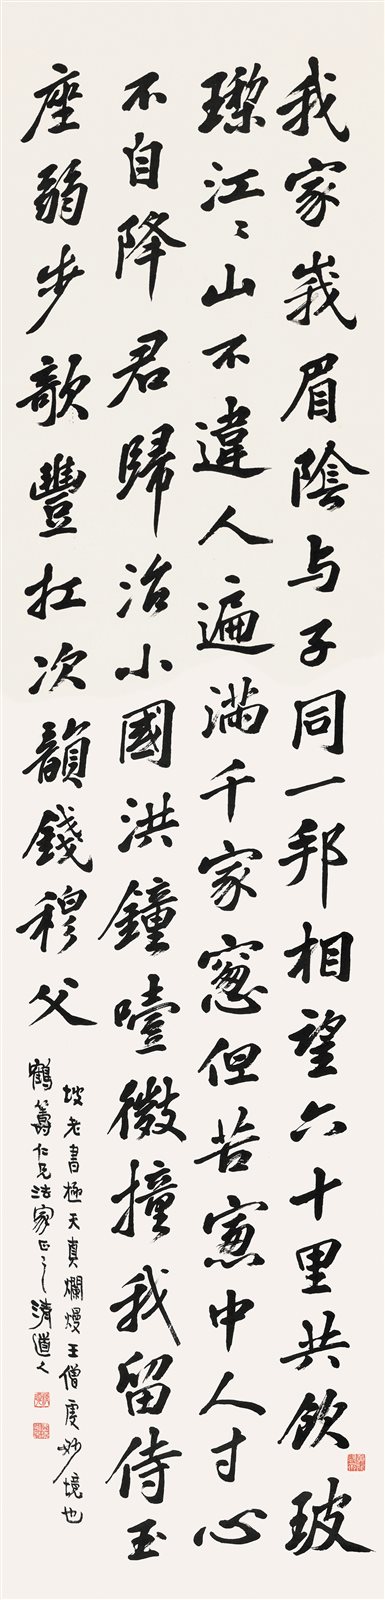 我家峩眉陰与子同一邦相望六十里共飲玻
瓈江〻山不違人遍滿千家窻但苦窻中人寸心
不自降君歸治小國洪鐘噎微撞我留侍玉
座弱步歌豐扛次韻錢穆父
坡老書極天真爛熳王僧虔妙境也
鶴籌仁兄法家正之清道人